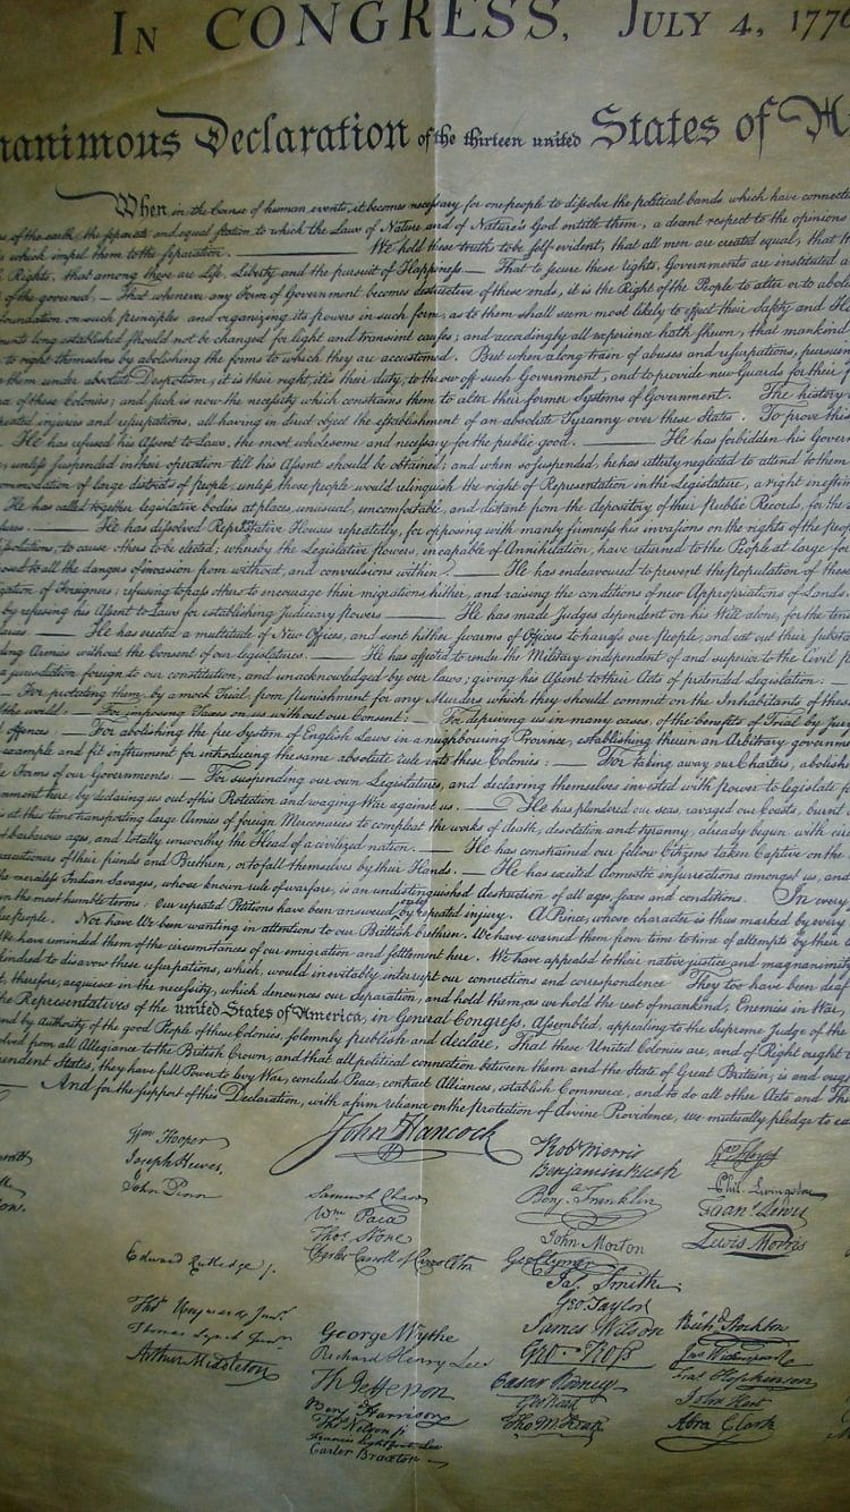 In CONGRESS, July 4, 1776
nanimous Declaration of the thirteen united States of
When in the Course of human events, it becomes necessary for one people to dissolve the political bands which have connected
of the earth, the separate and equal station to which the Laws of Nature and of Nature's God entitle them, a decent respect to the opinions
which impel them to the separation. We hold these truths to be self-evident, that all men are created equal, that
Rights, that among these are Life, Liberty and the pursuit of Happiness — That to secure these rights, Governments are instituted
of the governed, — That whenever any Form of Government becomes destructive of these ends, it is the Right of the People to alter or to abolish
foundation on such principles and organizing its powers in such form, as to them shall seem most likely to effect their Safety and
long established should not be changed for light and transient causes; and accordingly all experience hath shewn, that mankind
to right themselves by abolishing the forms to which they are accustomed. But when a long train of abuses and usurpations, pursuing
them under absolute Despotism, it is their right, it is their duty, to throw off such Government, and to provide new Guards for their
of these Colonies; and such is now the necessity which constrains them to alter their former Systems of Government. The history
repeated injuries and usurpations, all having in direct object the establishment of an absolute Tyranny over these States. To prove this
He has refused his Assent to Laws, the most wholesome and necessary for the public good. — He has forbidden his
unless suspended in their operation till his Assent should be obtained; and when so suspended, he has utterly neglected to attend to them
accommodation of large districts of people, unless those people would relinquish the right of Representation in the Legislature, a right
He has called together legislative bodies at places unusual, uncomfortable, and distant from the depository of their Public Records, for the
— He has dissolved Representative Houses repeatedly, for opposing with manly firmness his invasions on the rights of the people
to cause others to be elected; whereby the Legislative powers, incapable of Annihilation, have returned to the People at large for
exposed to all the dangers of invasion from without, and convulsions within. — He has endeavoured to prevent the population of these
of Foreigners; refusing to pass others to encourage their migrations hither, and raising the conditions of new Appropriations of Lands.
by refusing his Assent to Laws for establishing Judiciary powers — He has made Judges dependent on his Will alone, for the
— He has erected a multitude of New Offices, and sent hither swarms of Officers to harass our people, and eat out their
Armies without the Consent of our legislatures. — He has affected to render the Military independent of and superior to the Civil
a jurisdiction foreign to our constitution, and unacknowledged by our laws; giving his Assent to their Acts of pretended Legislation: —
— For protecting them, by a mock Trial, from punishment for any Murders which they should commit on the Inhabitants of these
the world: — For imposing Taxes on us without our Consent: — For depriving us in many cases, of the benefits of Trial by Jury
offences — For abolishing the free System of English Laws in a neighbouring Province, establishing therein an Arbitrary government
example and fit instrument for introducing the same absolute rule into these Colonies: — For taking away our Charters, abolishing
Forms of our Governments: — For suspending our own Legislatures, and declaring themselves invested with power to legislate
here, by declaring us out of his Protection and waging War against us. — He has plundered our seas, ravaged our Coasts, burnt
at this time transporting large Armies of foreign Mercenaries to compleat the works of death, desolation and tyranny, already begun with
barbarous ages, and totally unworthy the Head of a civilized nation. — He has constrained our fellow Citizens taken Captive on the
executioners of their friends and Brethren, or to fall themselves by their Hands. — He has excited domestic insurrections amongst us, and
the merciless Indian Savages, whose known rule of warfare, is an undistinguished destruction of all ages, sexes and conditions. In every
in the most humble terms: Our repeated Petitions have been answered only by repeated injury. A Prince, whose character is thus marked by every
people. Nor have We been wanting in attentions to our Brittish brethren. We have warned them from time to time of attempts by their
We have reminded them of the circumstances of our emigration and settlement here. We have appealed to their native justice and magnanimity
kindred to disavow these usurpations, which, would inevitably interrupt our connections and correspondence They too have been deaf
therefore, acquiesce in the necessity, which denounces our Separation, and hold them, as we hold the rest of mankind, Enemies in War,
the Representatives of the united States of America, in General Congress, Assembled, appealing to the Supreme Judge of the
and by Authority of the good People of these Colonies, solemnly publish and declare, That these United Colonies are, and of Right ought
from all Allegiance to the British Crown, and that all political connection between them and the State of Great Britain, is and ought
States, they have full Power to levy War, conclude Peace, contract Alliances, establish Commerce, and to do all other Acts and
— And for the support of this Declaration, with a firm reliance on the protection of divine Providence, we mutually pledge to
John Hancock
Wm Hooper
Joseph Hewes,
John Penn
Edward Rutledge
Thos Heyward Junr
Thomas Lynch Junr
Arthur Middleton
Samuel Chase
Wm Paca
Thos Stone
Charles Carroll of Carrollton
George Wythe
Richard Henry Lee
Th Jefferson
Benj Harrison
Thos Nelson jr
Francis Lightfoot Lee
Carter Braxton
Robt Morris
Benjamin Rush
Benj. Franklin
John Morton
Geo Clymer
Jas. Smith
Geo. Taylor
James Wilson
Geo. Ross
Caesar Rodney
Geo Read
Tho M:Kean
Wm Floyd
Phil. Livingston
Frans. Lewis
Lewis Morris
Richd Stockton
Jno Witherspoon
Fras. Hopkinson
John Hart
Abra Clark